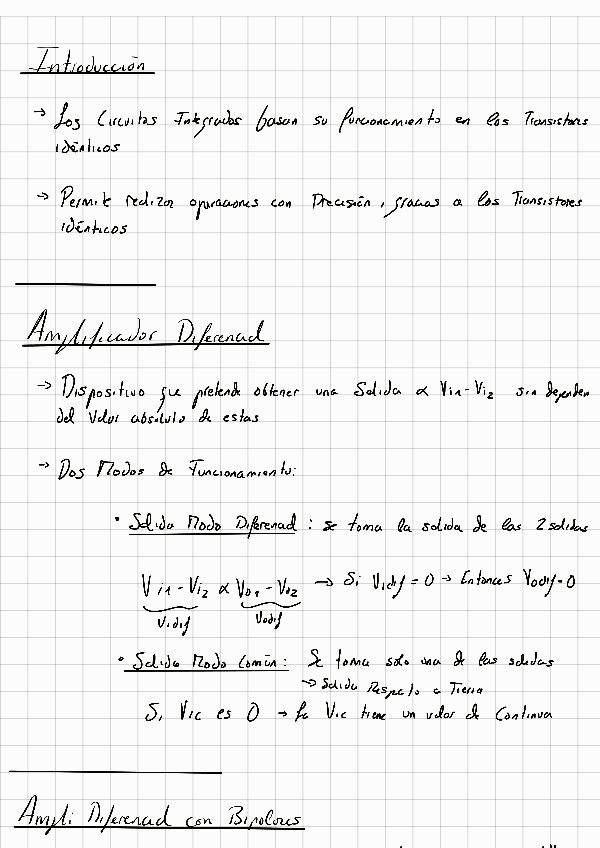 Introducción
→ Los Circuitos Integrados basan su funcionamiento en los Transistores
idénticos
→ Permite realizar operaciones con Precisión, gracias a los Transistores
idénticos
Amplificador Diferencial
→ Dispositivo que pretende obtener una Salida ∝ Vi1-Vi2 sin depender
del valor absoluto de estas
→ Dos Modos de Funcionamiento:
• Salida Modo Diferencial : se toma la salida de las 2 salidas
Vi1 - Vi2 ∝ Vo1 - Vo2 → Si Vidif = 0 → Entonces Vodif = 0
Vidif Vodif
• Salida Modo Común: Se toma solo una de las salidas
→ Salida Respecto a Tierra
Si Vic es 0 → la Vic tiene un valor de Continua
Ampli Diferencial con Bipolares